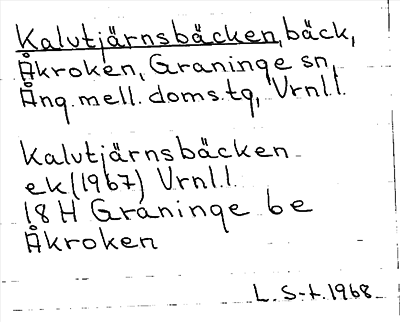 Kalvtjärnsbäcken, bäck,
Åkroken, Graninge sn,
Ång. mell. doms.tg, Vrnl.l.
Kalvtjärnsbäcken
ek (1967) Vrnl.l.
18 H Graninge 6e
Åkroken
L. S-t. 1968